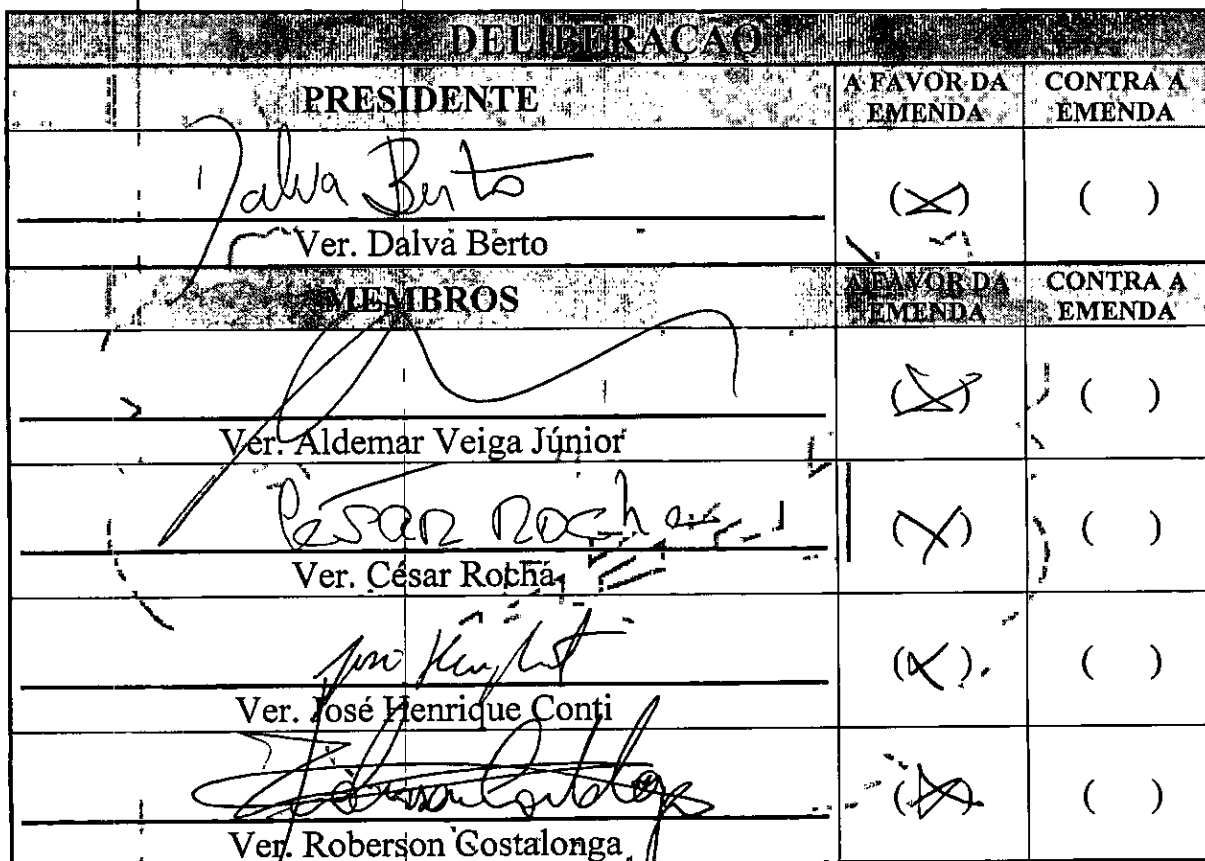 DELIBERAÇÃO
PRESIDENTE A FAVOR DA EMENDA CONTRA A EMENDA
Dalva Berto (X) ( )
Ver. Dalva Berto
MEMBROS A FAVOR DA EMENDA CONTRA A EMENDA
(X) ( )
Ver. Aldemar Veiga Júnior
César Rocha (X) ( )
Ver. César Rocha
José (X) ( )
Ver. José Henrique Conti
(X) ( )
Ver. Roberson Costalonga